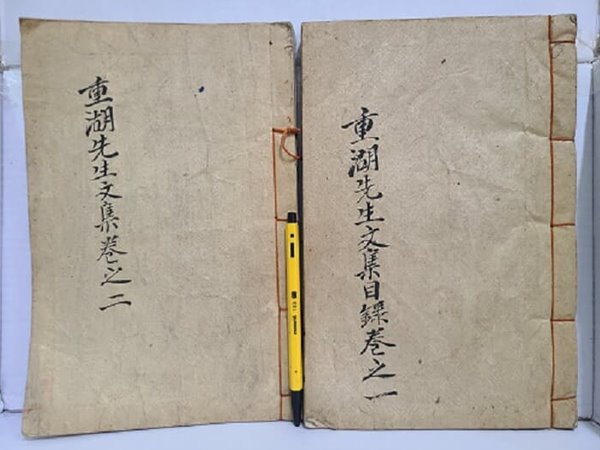 重湖先生文集目錄卷之一
重湖先生文集卷之二